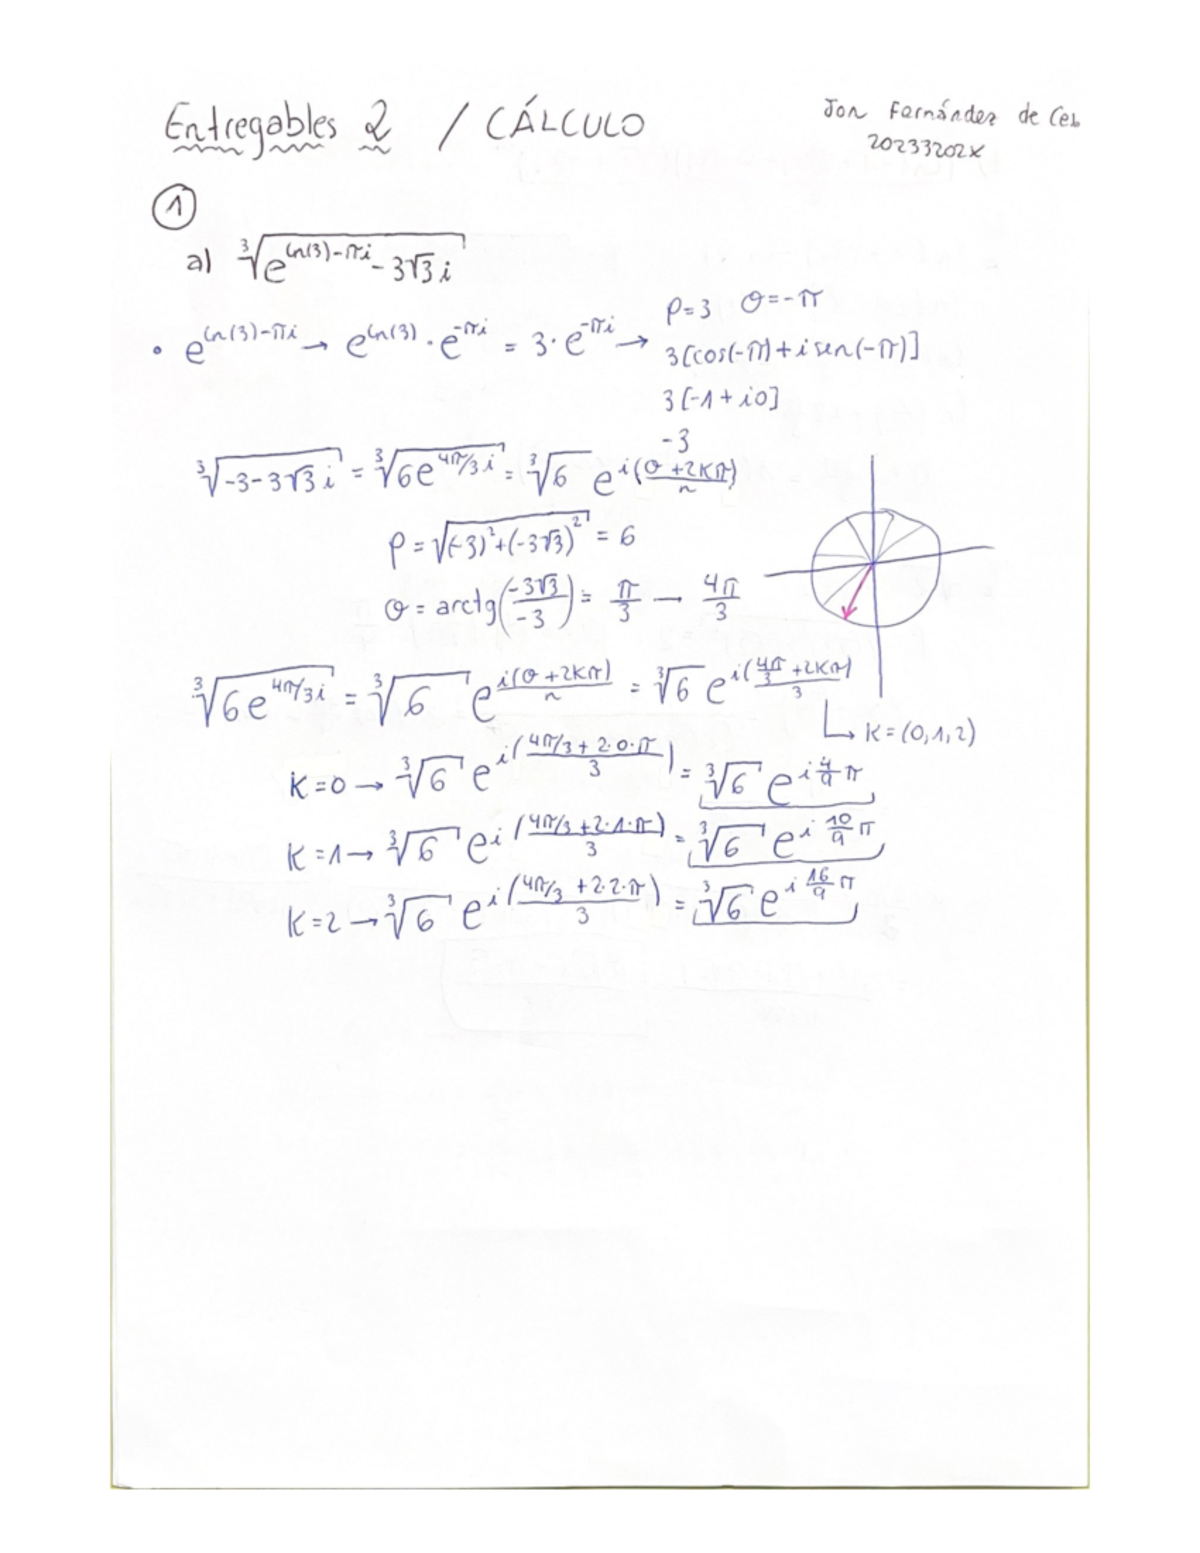 Entregables 2 / CÁLCULO
Jon Fernández de Ceb
20233202X
1
a) ∛(e^(ln(3)-πi) - 3√3 i)
• e^(ln(3)-πi) → e^(ln(3)) · e^(-πi) = 3 · e^(-πi) → ρ=3 θ=-π
3[cos(-π)+i sen(-π)]
3[-1+i0]
-3
∛(-3-3√3 i) = ∛(6e^(4π/3 i)) = ∛6 e^(i(θ+2kπ)/n)
ρ = √((-3)²+(-3√3)²) = 6
θ = arctg(-3√3/-3) = π/3 — 4π/3
∛(6e^(4π/3 i)) = ∛6 e^(i(θ+2kπ)/n) = ∛6 e^(i(4π/3+2kπ)/3)
↳ K=(0,1,2)
K=0 → ∛6 e^(i(4π/3+2·0·π)/3) = ∛6 e^(i 4/9 π)
K=1 → ∛6 e^(i(4π/3+2·1·π)/3) = ∛6 e^(i 10/9 π)
K=2 → ∛6 e^(i(4π/3+2·2·π)/3) = ∛6 e^(i 16/9 π)